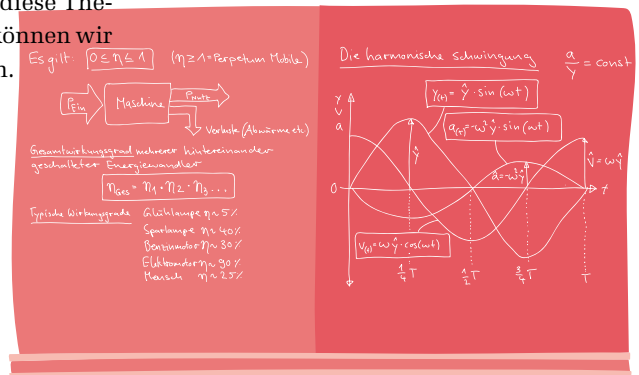 diese The-
können wir
n.
Es gilt: 0 ≤ η ≤ 1 (η ≥ 1 = Perpetum Mobile)
P_Ein Maschine P_Nutz
Verluste (Abwärme etc)
Gesamtwirkungsgrad mehrerer hintereinander
geschalteter Energiewandler
η_Ges = η_1 · η_2 · η_3 ...
Typische Wirkungsgrade Glühlampe η ~ 5%
Sparlampe η ~ 40%
Benzinmotor η ~ 30%
Elektromotor η ~ 90%
Mensch η ~ 25%
Die harmonische Schwingung
a/y = const
y_(t) = ŷ · sin (ωt)
a_(t) = -ω² ŷ · sin (ωt)
y
v
a
ŷ
v̂ = ωŷ
â = -ω²ŷ
0
t
v_(t) = ω ŷ · cos(ωt)
1/4 T
1/2 T
3/4 T
T